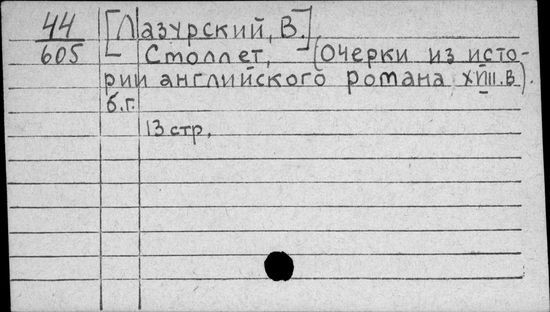 44
605
[Лазурский, В.]
Столлет, (Очерки из исто-
рии английского романа XVIII.в).
б.г.
13 стр.